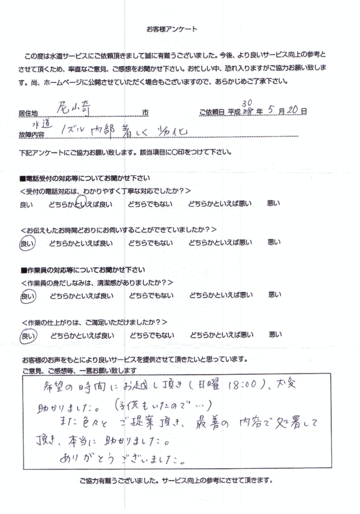 お客様アンケート
この度は水道サービスにご依頼頂きまして誠に有難うございました。今後、より良いサービス向上の参考と
させて頂くため、率直なご意見、ご感想をお聞かせ下さい。お忙しい中、恐れ入りますがご協力お願い致しま
す。尚、ホームページに公開させていただく場合もございますので、あらかじめご了承下さい。
居住地 尼崎 市 ご依頼日 平成 30 年 5 月 20 日
故障内容 水道ノズル内部著しく劣化
下記アンケートにご協力お願い致します。該当項目に〇印をつけて下さい。
■電話受付の対応等についてお聞かせ下さい
<受付の電話対応は、わかりやすく丁寧な対応でしたか?>
良い どちらかといえば良い どちらでもない どちらかといえば悪い 悪い
<お伝えしたお時間どおりにお伺いすることができていましたか?>
良い どちらかといえば良い どちらでもない どちらかといえば悪い 悪い
■作業員の対応等についてお聞かせ下さい
<作業員の身だしなみは、清潔感がありましたか?>
良い どちらかといえば良い どちらでもない どちらかといえば悪い 悪い
<作業の仕上がりは、ご満足いただけましたか?>
良い どちらかといえば良い どちらでもない どちらかといえば悪い 悪い
お客様のお声をもとにより良いサービスを提供させて頂きたいと思っています。
ご意見、ご感想等、一言お願い致します
希望の時間にお越し頂き(日曜18:00)、大変
助かりました。(子供もいたので…)
また色々とご提案頂き、最善の内容で処置して
頂き、本当に助かりました。
ありがとうございました。
ご協力有難うございました。サービス向上の参考にさせて頂きます。